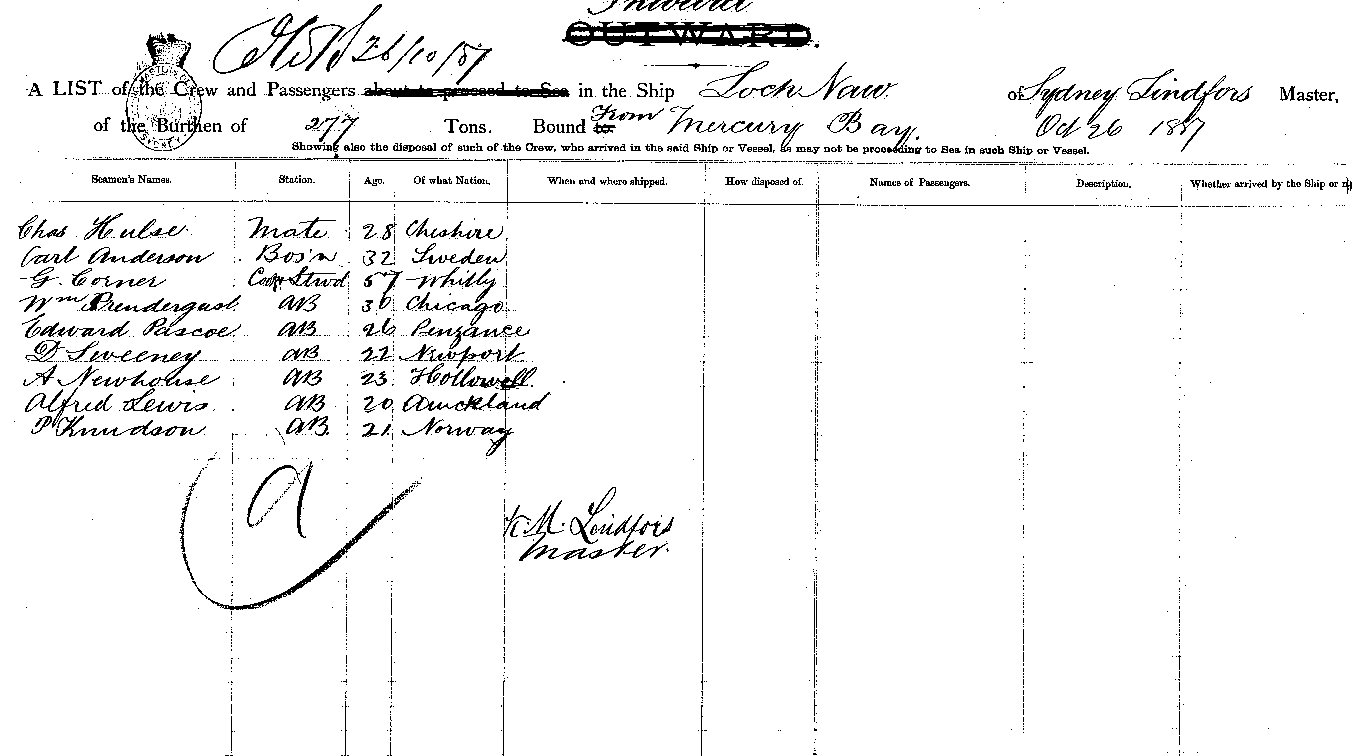 Inward
OUTWARD.
26/10/87
A LIST of the Crew and Passengers about to proceed to Sea in the Ship Loch Naw of Sydney Lindfors Master,
of the Burthen of 277 Tons. Bound to From Mercury Bay. Oct 26 1887
Showing also the disposal of such of the Crew, who arrived in the said Ship or Vessel, as may not be proceeding to Sea in such Ship or Vessel.
Seamen's Names. Station. Age. Of what Nation. When and where shipped. How disposed of. Names of Passengers. Description. Whether arrived by the Ship or
Chas Hulse Mate 28 Cheshire
Carl Anderson Bos'n 32 Sweden
G. Corner Cook Stwd 57 Whitby
Wm Prendergast AB 30 Chicago
Edward Pascoe AB 26 Penzance
D Sweeney AB 22 Newport
A Newhouse AB 23 Hollowell
Alfred Lewis AB 20 Auckland
P Knudson AB 21 Norway
a
M. Lindfors
Master